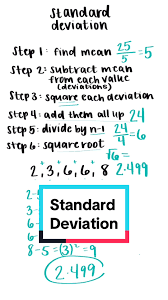 standard
deviation
Step 1: find mean 25/5 = 5
Step 2: subtract mean
from each value
(deviations)
Step 3: square each deviation
Step 4: add them all up 24
Step 5: divide by n-1 24/4 = 6
step 6: square root
√6 =
2, 3, 6, 6, 8 2.499
Standard
Deviation
8-5=(3)²=9
2.499